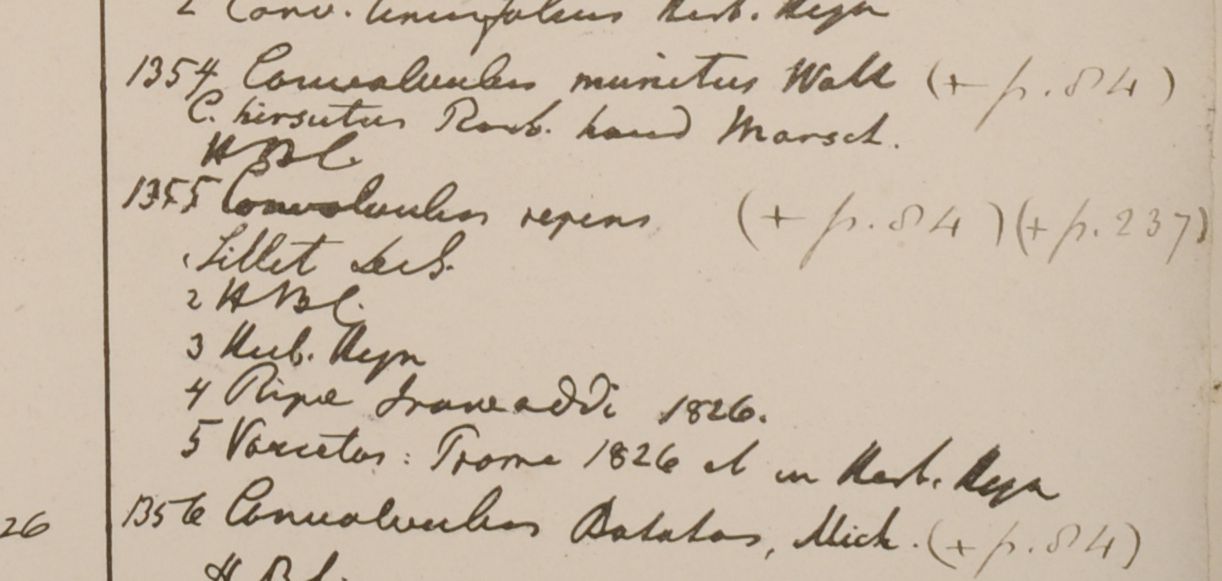 2 Conv. linifolius Herb. Heyn
1354 Convolvulus munitus Wall (+ p. 84)
C. hirsutus Roxb. haud Marsch.
HBC.
1355 Convolvulus repens (+ p. 84) (+ p. 237)
Sillet
2 HBC.
3 Herb. Heyn
4 Ripae Irawaddi 1826.
5 Varietas: Prome 1826 et in Herb. Heyn
26 1356 Convolvulus Batatas, Mich. (+ p. 84)
HBC.